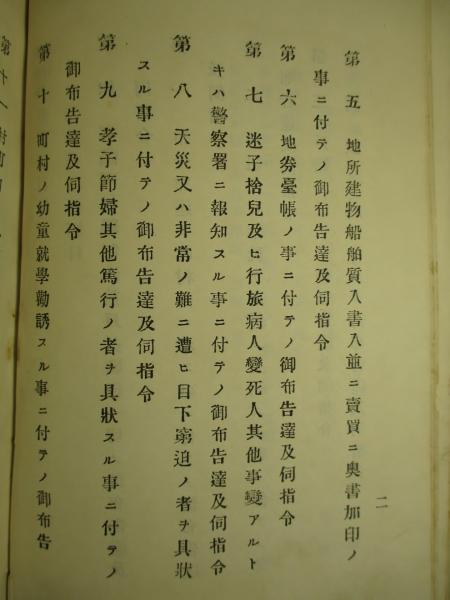 第五 地所建物船舶質入書入並ニ賣買ニ奥書加印ノ
事ニ付テノ御布告達及伺指令
第六 地券臺帳ノ事ニ付テノ御布告達及伺指令
第七 迷子捨兒及ヒ行旅病人變死人其他事變アルト
キハ警察署ニ報知スル事ニ付テノ御布告達及伺指令
第八 天災又ハ非常ノ難ニ遭ヒ目下窮迫ノ者ヲ具狀
スル事ニ付テノ御布告達及伺指令
第九 孝子節婦其他篤行ノ者ヲ具狀スル事ニ付テノ
御布告達及伺指令
第十 町村ノ幼童就學勸誘スル事ニ付テノ御布告
二